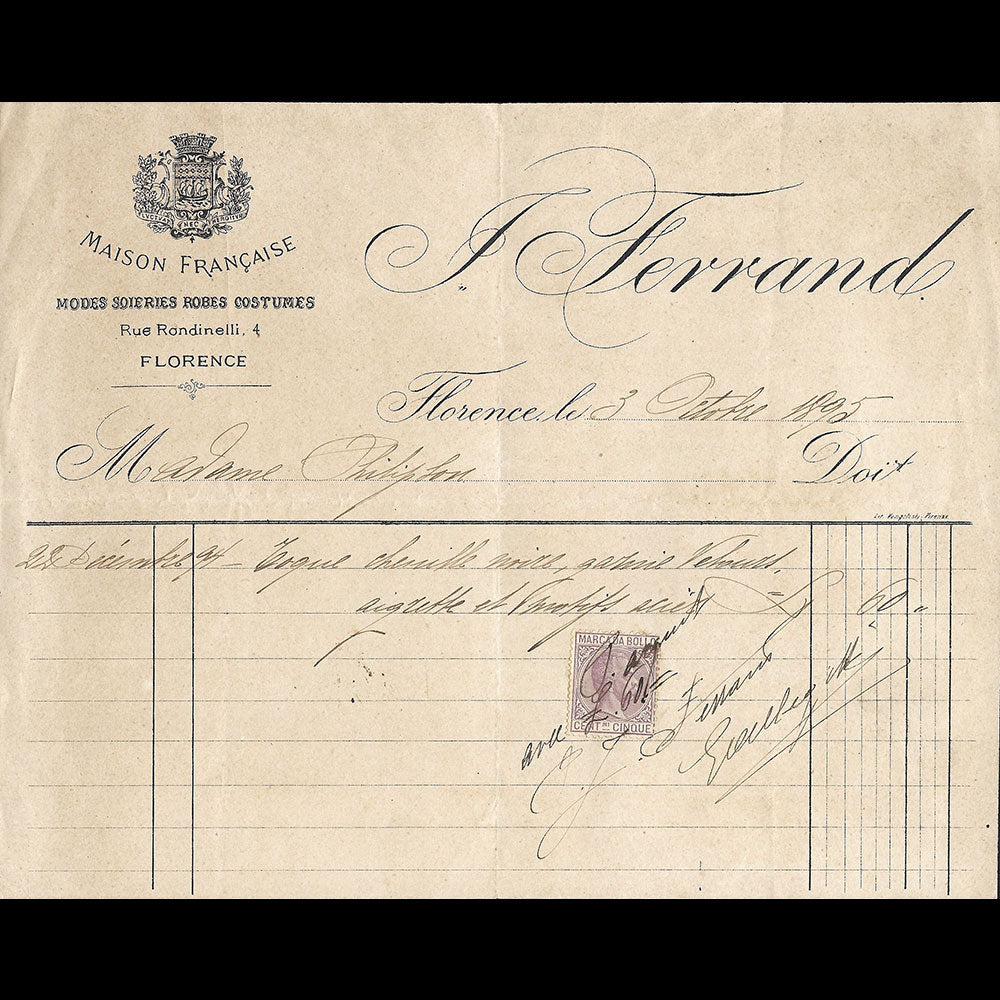 FLUCTUAT NEC MERGITUR
MAISON FRANÇAISE
MODES SOIERIES ROBES COSTUMES
Rue Rondinelli, 4
FLORENCE
J. Ferrand.
Florence, le 3 Octobre 1895
Madame Philipson Doit
22 Décembre 94 – Toque chenille noire, garnie Velours,
aigrette et motifs acier = L 60 "
MARCA DA BOLLO
CENT.MI CINQUE
acquit
J. Ferrand